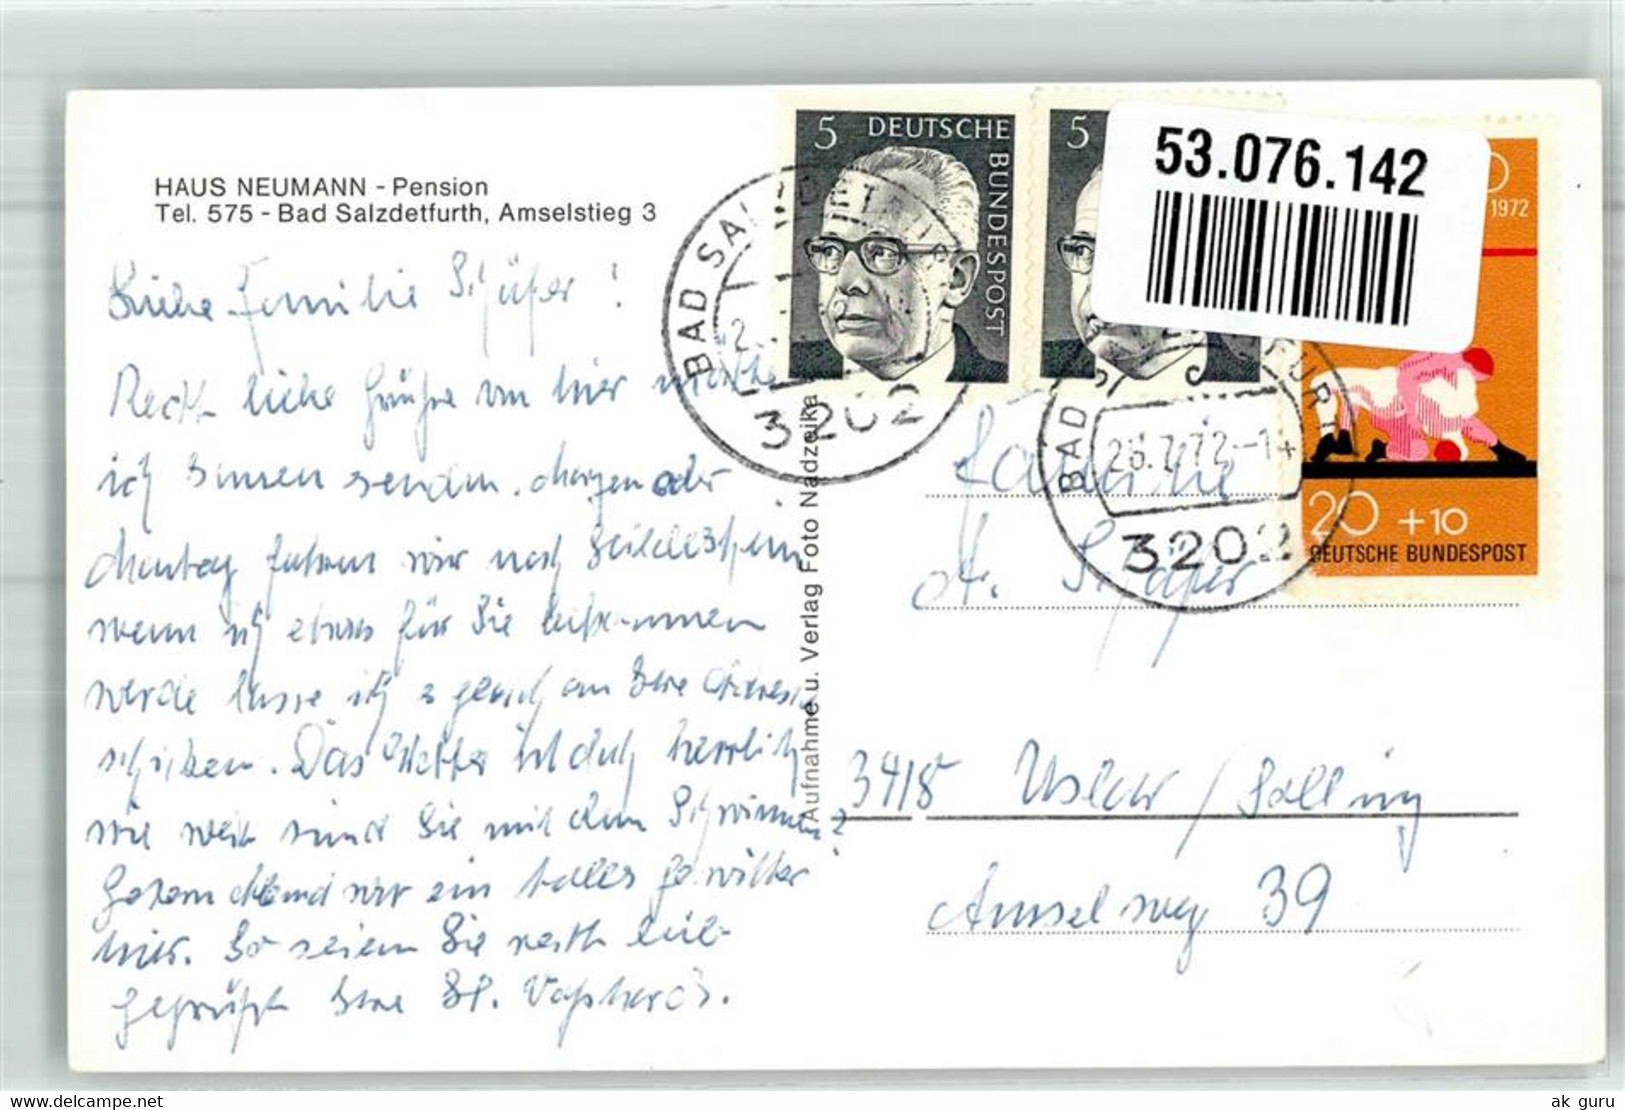 HAUS NEUMANN - Pension
Tel. 575 - Bad Salzdetfurth, Amselstieg 3
Liebe Familie Schäfer!
Recht liebe Grüße von hier möchte
ich Ihnen senden. Morgen oder
Montag fahren wir nach Hildesheim
wenn ich etwas für Sie bekommen
werde lasse ich es gleich an Ihre Adresse
schicken. Das Wetter ist doch herrlich
wie weit sind Sie mit dem Schwimmen?
Gestern Abend war ein tolles Gewitter
hier. So seien Sie recht lieb
gegrüßt Ihre
Aufnahme u. Verlag Foto Nadzeika
5 DEUTSCHE BUNDESPOST
5
53.076.142
1972
20 +10
DEUTSCHE BUNDESPOST
BAD SALZDETFURTH
3202
BAD SALZDETFURTH
26.7.72-14
3202
Familie
A. Schäfer
3418 Uslar / Solling
Amselweg 39
delcampe.net
ak_guru